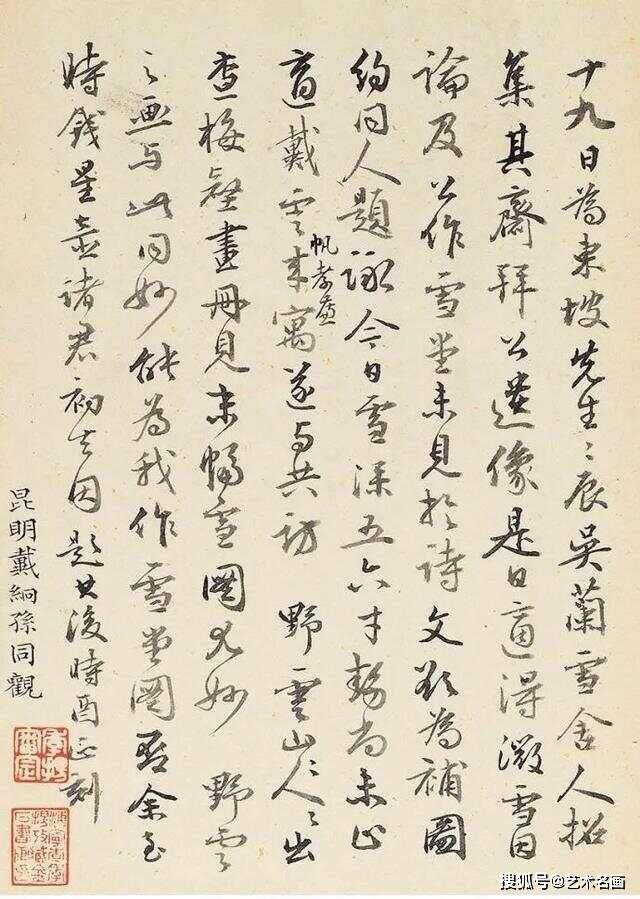 十九日為東坡先生〻辰吳蘭雪舍人招
集其齋拜公遺像是日適得微雪因
論及公作雪堂未見於詩文欲為補圖
約同人題詠今日雪深五六寸勢尚未止
適戴雲帆孝廉來寓遂與共訪野雲山人〻出
查梅壑畫冊見末幅雪圖尤妙野雲
之畫與此同妙能為我作雪堂圖否余至
時錢星壺諸君初去因題其後時酉正刻
昆明戴絅孫同觀
搜狐号@艺术名画